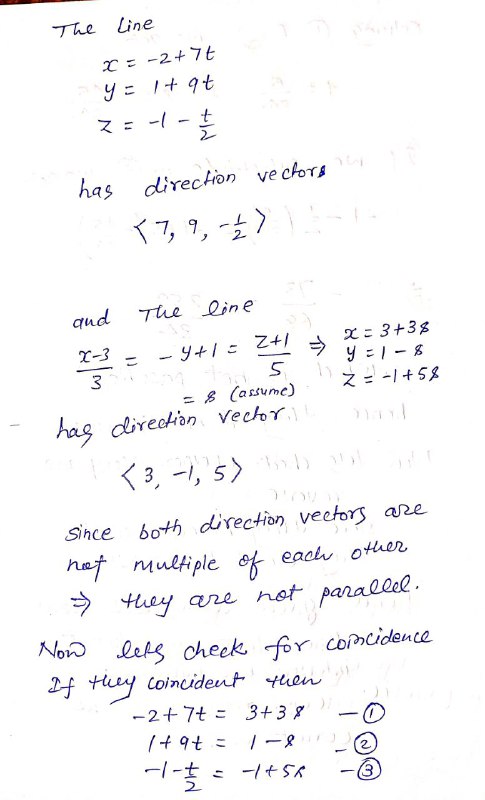 The Line
x = -2+7t
y = 1+9t
z = -1 - t/2
has direction vectors
<7, 9, -1/2>
and The line
(x-3)/3 = -y+1 = (z+1)/5 ⇒ x = 3+3s
y = 1-s
z = -1+5s
= s (assume)
has direction vector
<3, -1, 5>
since both direction vectors are
not multiple of each other
⇒ they are not parallel.
Now lets check for coincidence
If they coincident then
-2+7t = 3+3s -①
1+9t = 1-s -②
-1-t/2 = -1+5s -③